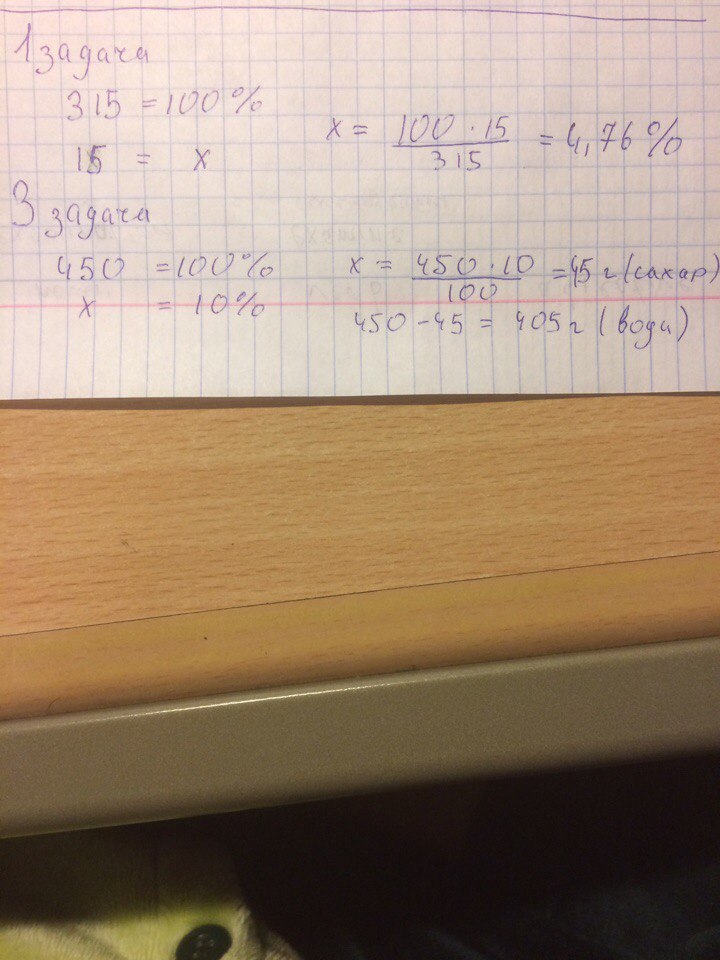 1 задача
315 = 100%
15 = x
x = 100 · 15 / 315 = 4,76%
3 задача
450 = 100%
x = 10%
x = 450 · 10 / 100 = 45 г (сахар)
450 - 45 = 405 г (води)